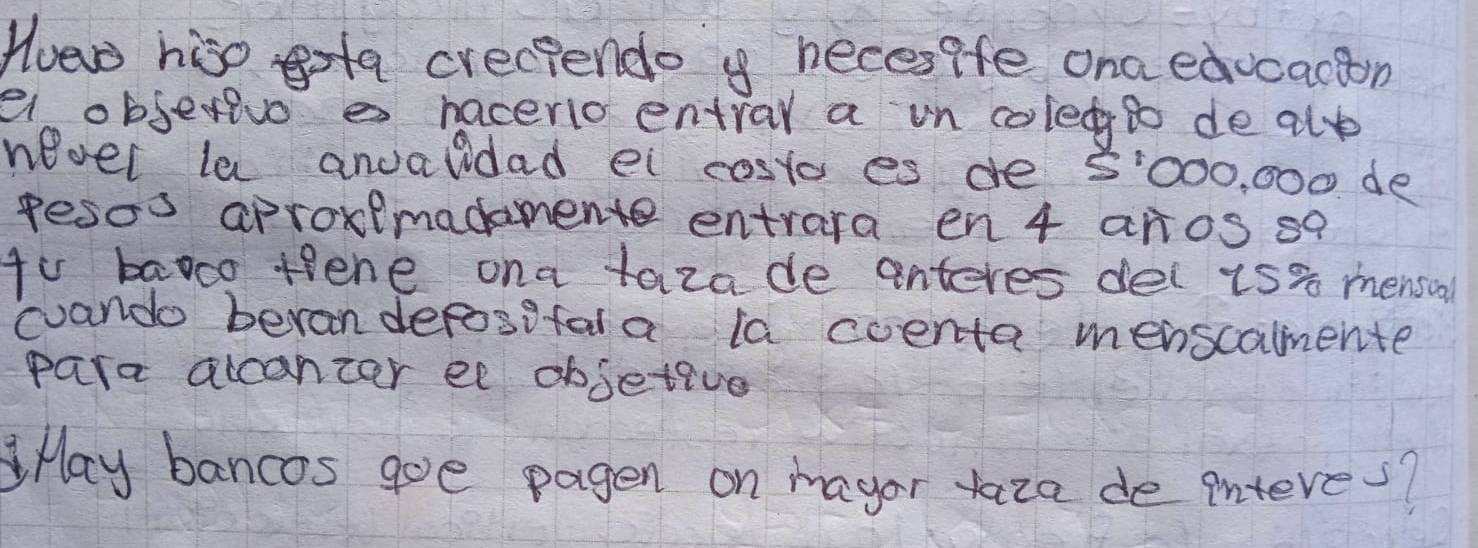 Nuevo hiso esta creciendo y necesite una educacion
el objetivo es hacerlo entrar a un colegio de alto
nivel la anualidad el costo es de 5'000,000 de
pesos aproximadamente entrara en 4 años si
tu banco tiene una taza de interes del 15% mensual
cuando beran depositar a la cuenta menscalmente
para alcanzar el objetivo
¿Hay bancos que pagen un mayor taza de interes?